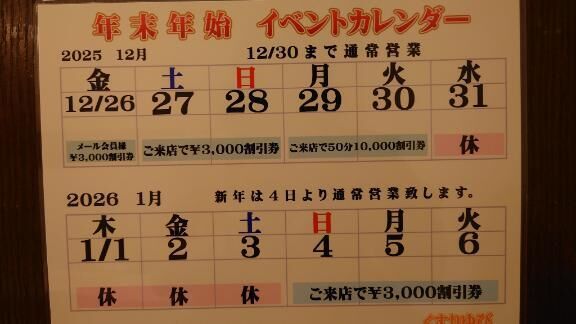 年末年始 イベントカレンダー
2025 12月 12/30まで通常営業
金 土 日 月 火 水
12/26 27 28 29 30 31
メール会員様
¥3,000割引券 ご来店で¥3,000割引券 ご来店で50分10,000割引券 休
2026 1月 新年は4日より通常営業致します。
木 金 土 日 月 火
1/1 2 3 4 5 6
休 休 休 ご来店で¥3,000割引券